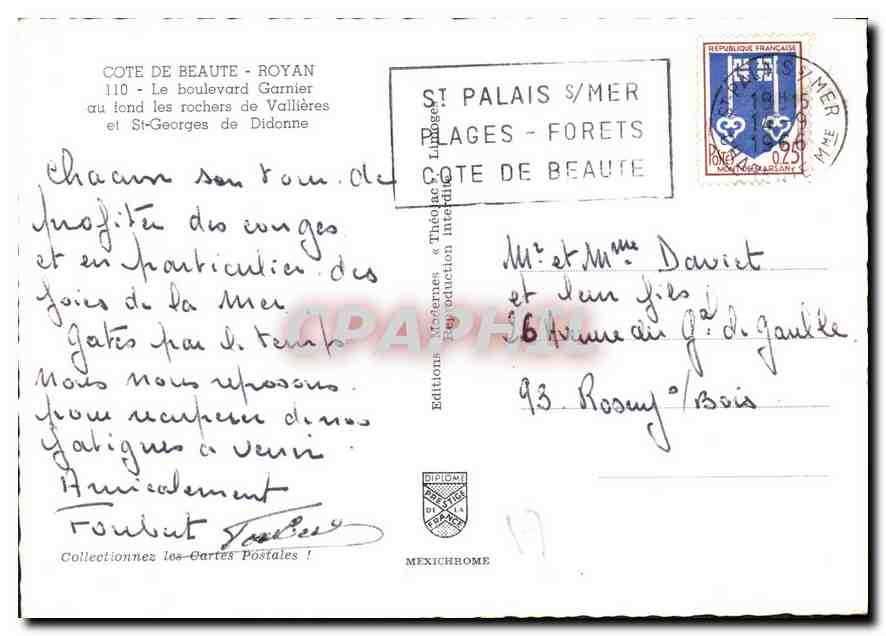 COTE DE BEAUTE - ROYAN
110 - Le boulevard Garnier
au fond les rochers de Vallières
et St-Georges de Didonne
Chacun son tour de
profiter des conges
et en particulier des
joies de la mer
Gatés par le temps
nous nous reposons
pour recuperer de nos
fatigues a venir
Amicalement
Foubert
Collectionnez les Cartes Postales !
Editions Modernes « Théojac » - Limoges
Reproduction interdite
DIPLOME
PRESTIGE
DE LA
FRANCE
MEXICHROME
ST PALAIS S/MER
PLAGES - FORETS
COTE DE BEAUTE
REPUBLIQUE FRANÇAISE
POSTES 0,25
MONT-DE-MARSAN
ST PALAIS S/MER
18H15
14-9
1966
CHARENTE MME
Mr et Mme Daviet
et leur fils
26 Avenue du Gal de Gaulle
93. Rosny s/Bois
17
CPAPHIL